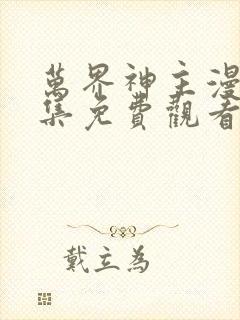 萬界神主漫
集免費觀看
戴立為